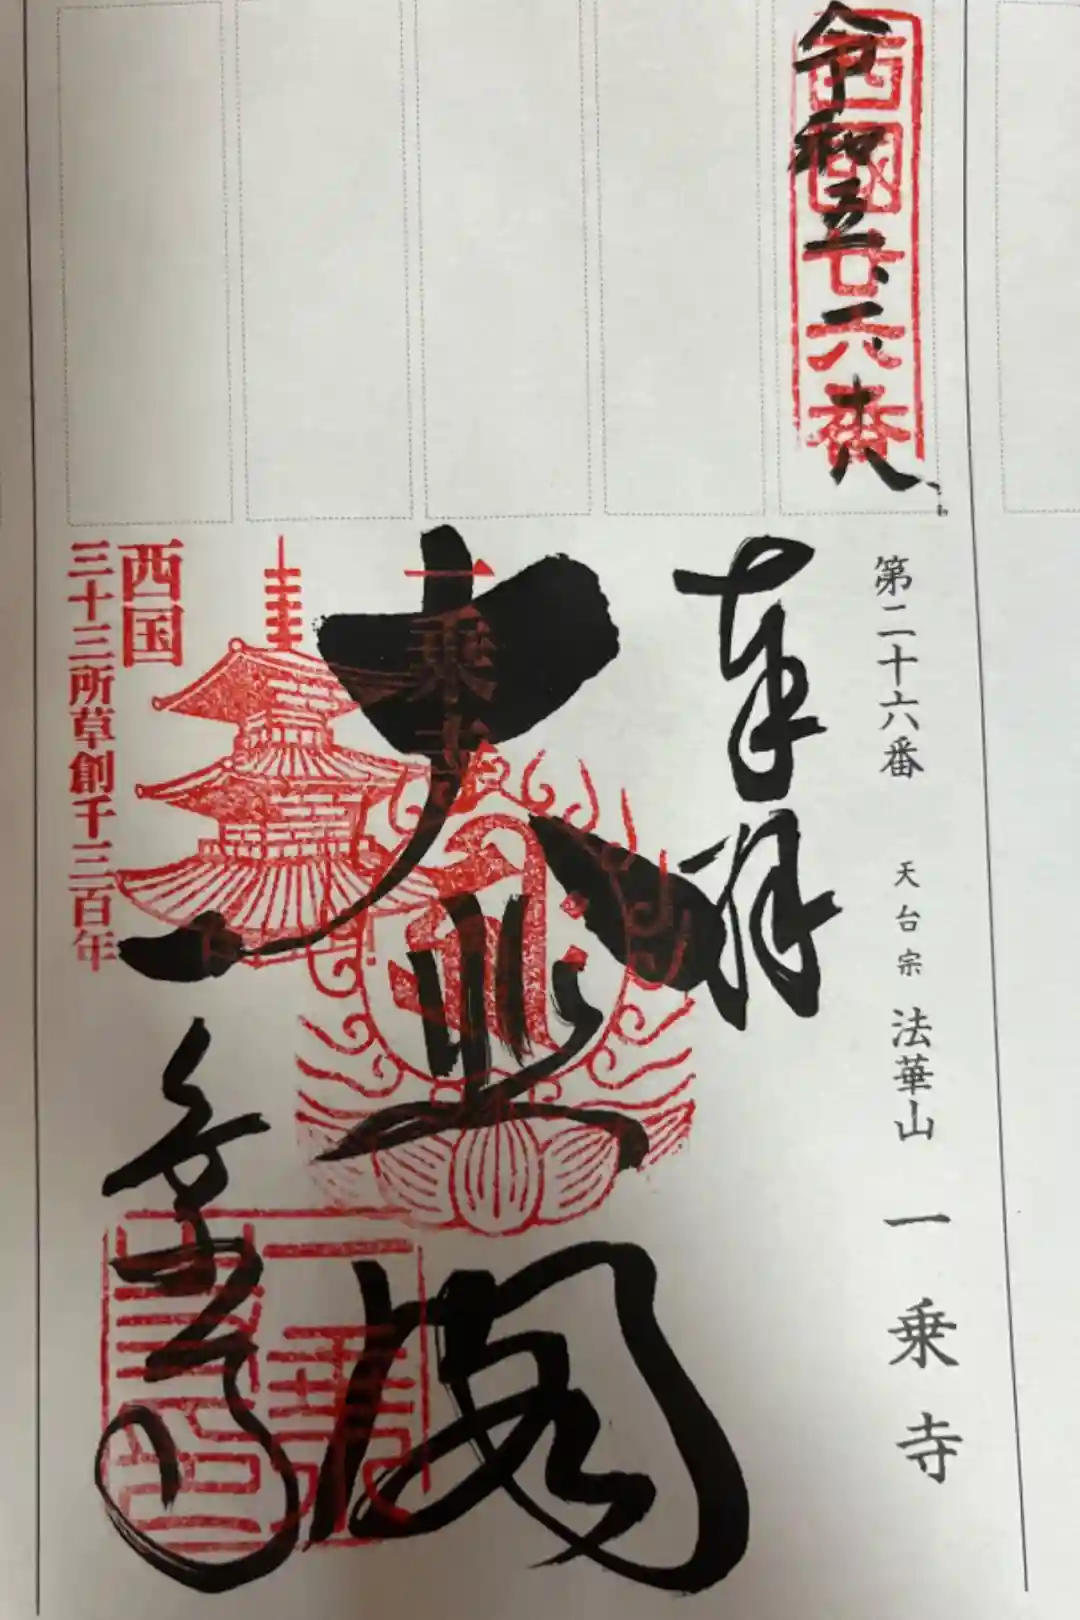 令和五、二、十八
西國廿六番
第二十六番 天台宗 法華山 一乗寺
奉拝
大悲閣
一乗寺
一乗寺
西国
三十三所草創千三百年